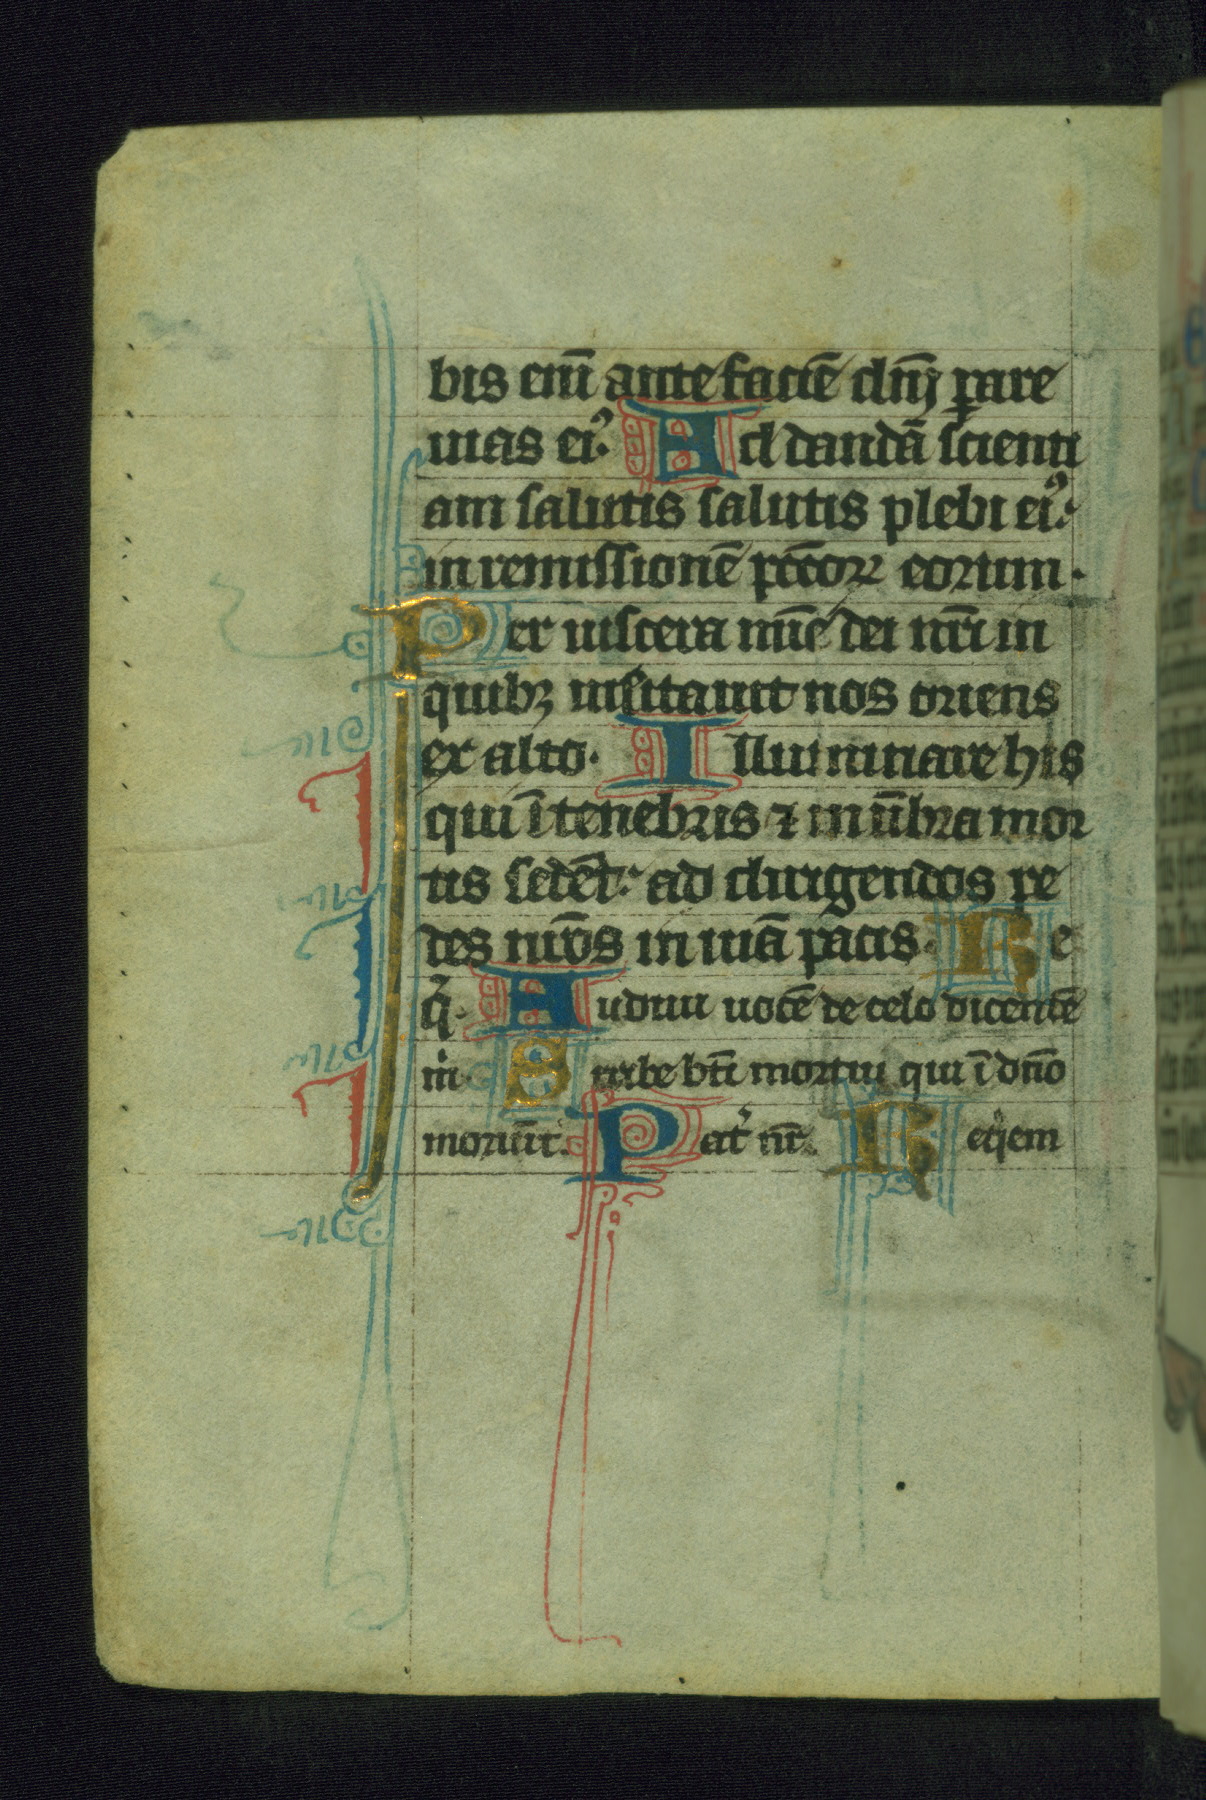 bis enī ante faciē dn̄i ꝑare
uias ei⁹. Ad dandā scienti
am salutis salutis plebi ei⁹:
in remissionē pc̄cоꝝ eorum.
Per uiscera mīe dei nr̄i in
quibꝫ uisitauit nos oriens
ex alto. Illuminare his
qui ī tenebris ⁊ in ūbra mor
tis sedēt: ad dirigendos pe
des nr̄os in uiā pacis. Re
q̄. Audiui uocē de celo dicentē
m̄. Scribe bt̄i mortui qui ī dn̄o
moriūt. Pat̄ nr̄. Req̄em